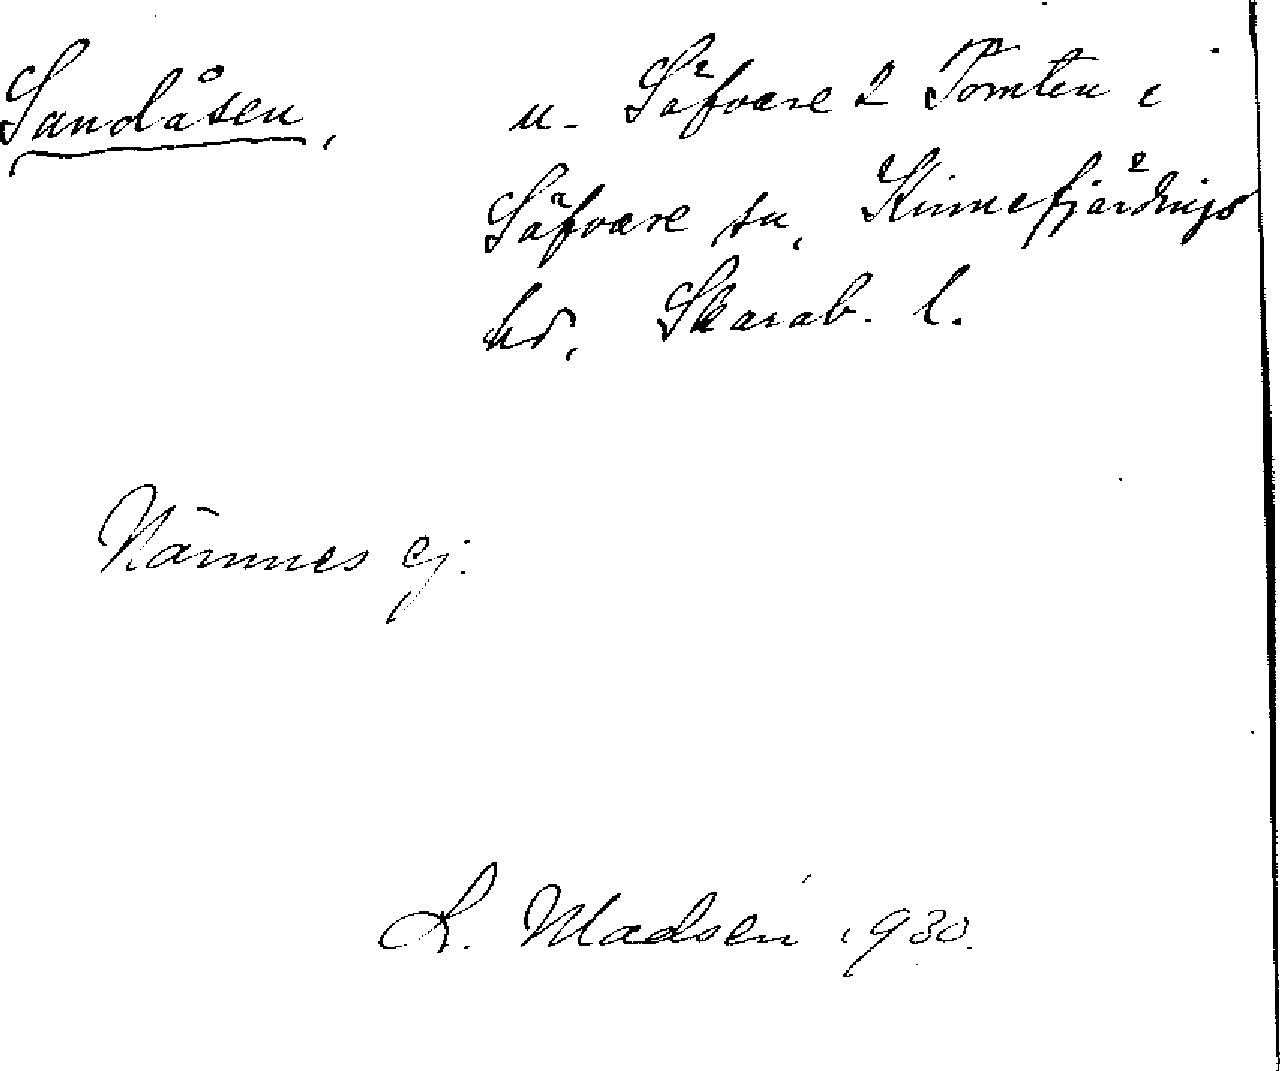 Sandåsen, u. Säfvare 2 Tomten i
Säfvare sn, Kinnefjärdings
hd, Skarab. l.
Nämnes ej.
L. Madsen 1930.